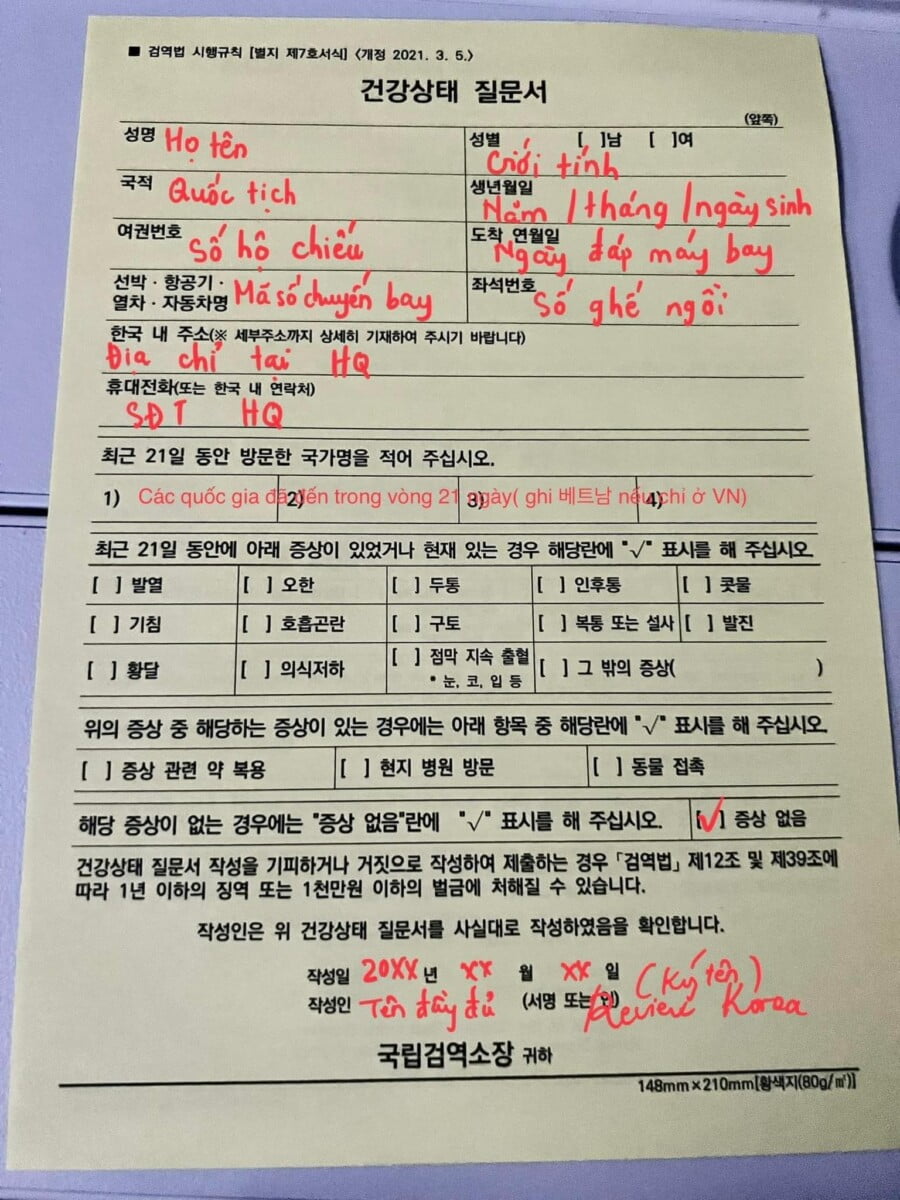 ■ 검역법 시행규칙 [별지 제7호서식] <개정 2021. 3. 5.>
건강상태 질문서
(앞쪽)
성명 Họ tên
성별 [ ]남 [ ]여
Giới tính
국적 Quốc tịch
생년월일
Năm / tháng / ngày sinh
여권번호
Số hộ chiếu
도착 연월일
Ngày đáp máy bay
선박·항공기·
열차·자동차명 Mã số chuyến bay
좌석번호
Số ghế ngồi
한국 내 주소(※ 세부주소까지 상세히 기재하여 주시기 바랍니다)
Địa chỉ tại HQ
휴대전화(또는 한국 내 연락처)
SĐT HQ
최근 21일 동안 방문한 국가명을 적어 주십시오.
1) 2) 3) 4)
Các quốc gia đã đến trong vòng 21 ngày( ghi 베트남 nếu chỉ ở VN)
최근 21일 동안에 아래 증상이 있었거나 현재 있는 경우 해당란에 "√" 표시를 해 주십시오.
[ ] 발열 [ ] 오한 [ ] 두통 [ ] 인후통 [ ] 콧물
[ ] 기침 [ ] 호흡곤란 [ ] 구토 [ ] 복통 또는 설사 [ ] 발진
[ ] 황달 [ ] 의식저하 [ ] 점막 지속 출혈 [ ] 그 밖의 증상( )
* 눈, 코, 입 등
위의 증상 중 해당하는 증상이 있는 경우에는 아래 항목 중 해당란에 "√" 표시를 해 주십시오.
[ ] 증상 관련 약 복용 [ ] 현지 병원 방문 [ ] 동물 접촉
해당 증상이 없는 경우에는 "증상 없음"란에 "√" 표시를 해 주십시오. [√] 증상 없음
건강상태 질문서 작성을 기피하거나 거짓으로 작성하여 제출하는 경우 「검역법」 제12조 및 제39조에
따라 1년 이하의 징역 또는 1천만원 이하의 벌금에 처해질 수 있습니다.
작성인은 위 건강상태 질문서를 사실대로 작성하였음을 확인합니다.
작성일 20XX 년 XX 월 XX 일 (Ký tên)
작성인 Tên đầy đủ (서명 또는 인) Review Korea
국립검역소장 귀하
148mm×210mm[황색지(80g/㎡)]